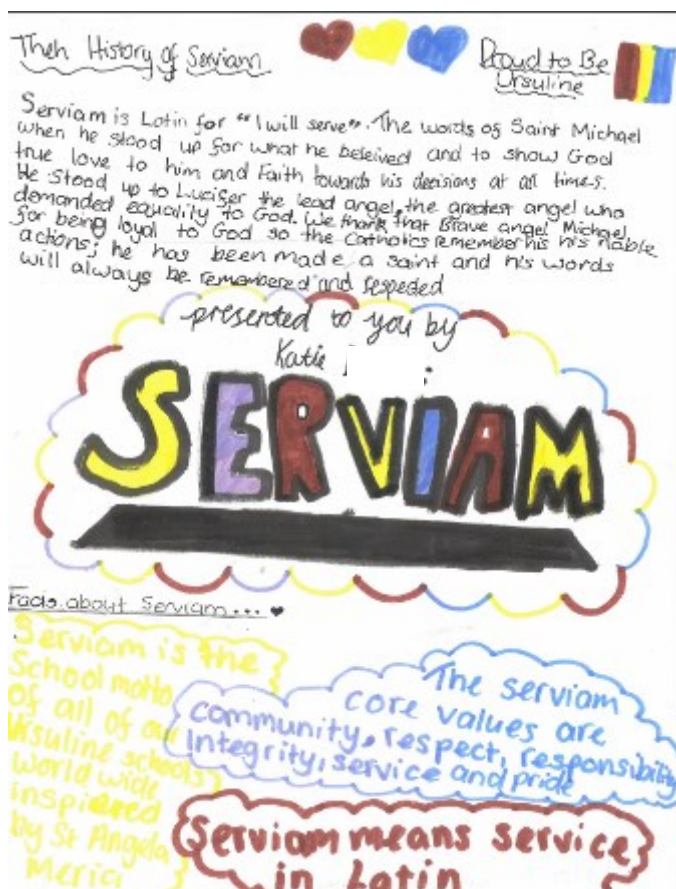 Theh History of Serviam
Proud to Be
Ursuline
Serviam is Latin for "I will serve". The words of Saint Michael
when he stood up for what he beleived and to show God
true love to him and Faith towards his decisions at all times.
He Stood up to Lucifer the lead angel, the greatest angel who
demanded equality to God. We thank that Brave angel Michael
for being loyal to God so the Catholics remember his his noble
actions; he has been made a saint and his words
will always be remembered and respected
presented to you by
Katie
SERVIAM
Facts about Serviam...
Serviam is the
School motto
of all of our
Ursuline schools
world wide
inspiered
by St Angela
Merici
The serviam
core values are
community, respect, responsibility
Integrity, service and pride
Serviam means service
in Latin